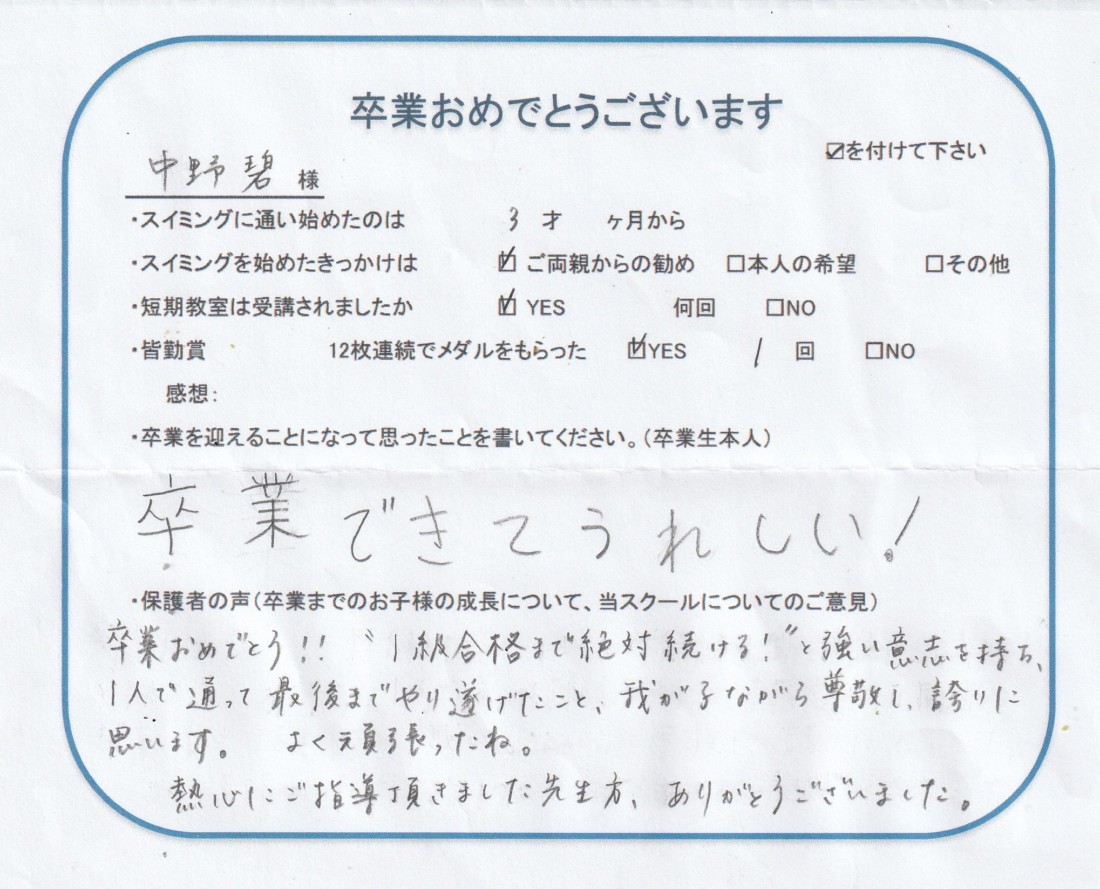 卒業おめでとうございます
☑を付けて下さい
中野碧 様
・スイミングに通い始めたのは 3 才 ヶ月から
・スイミングを始めたきっかけは ☑ ご両親からの勧め □本人の希望 □その他
・短期教室は受講されましたか ☑ YES 何回 □NO
・皆勤賞 12枚連続でメダルをもらった ☑YES 1 回 □NO
感想：
・卒業を迎えることになって思ったことを書いてください。（卒業生本人）
卒業できてうれしい！
・保護者の声（卒業までのお子様の成長について、当スクールについてのご意見）
卒業おめでとう!! “1級合格まで絶対続ける!”と強い意志を持ち、
1人で通って最後までやり遂げたこと、我が子ながら尊敬し、誇りに
思います。 よく頑張ったね。
熱心にご指導頂きました先生方、ありがとうございました。